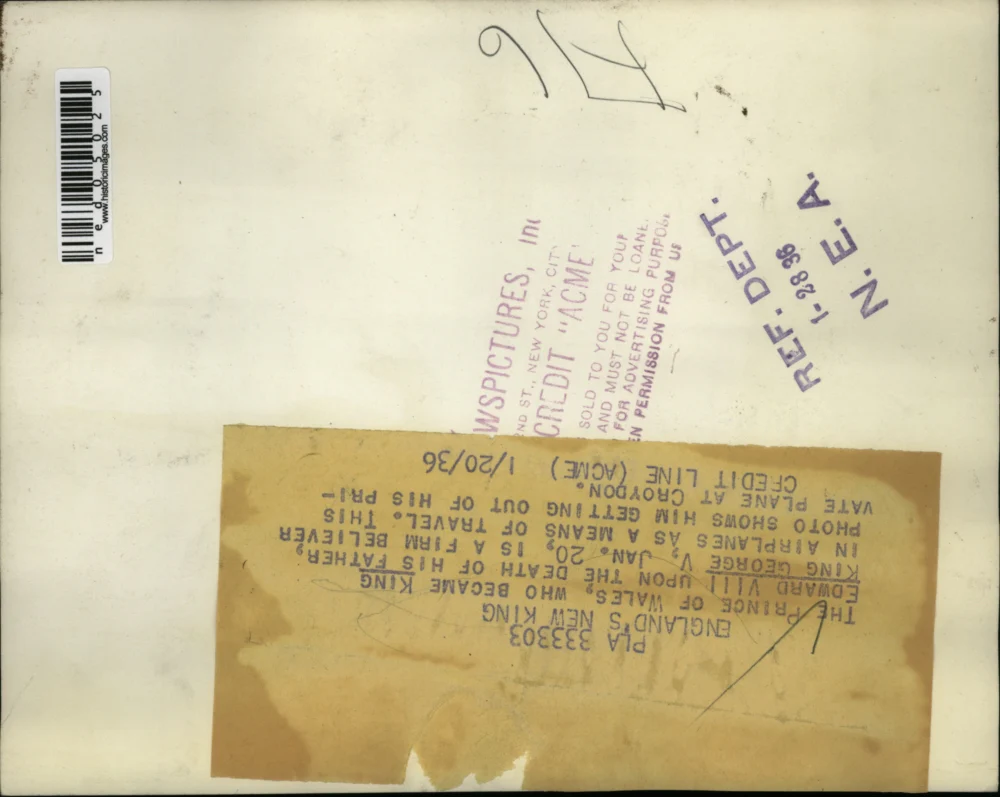 PLA 333303
ENGLAND'S NEW KING
THE PRINCE OF WALES, WHO BECAME KING
EDWARD VIII UPON THE DEATH OF HIS FATHER,
KING GEORGE V, JAN. 20, IS A FIRM BELIEVER
IN AIRPLANES AS A MEANS OF TRAVEL. THIS
PHOTO SHOWS HIM GETTING OUT OF HIS PRI-
VATE PLANE AT CROYDON.
CREDIT LINE (ACME) 1/20/36
WSPICTURES, Inc
ND ST., NEW YORK, CITY
CREDIT "ACME"
SOLD TO YOU FOR YOUR
AND MUST NOT BE LOANE
FOR ADVERTISING PURPOS
EN PERMISSION FROM US
REF. DEPT.
1-28 36
N. E. A.
ned05025
www.historicimages.com